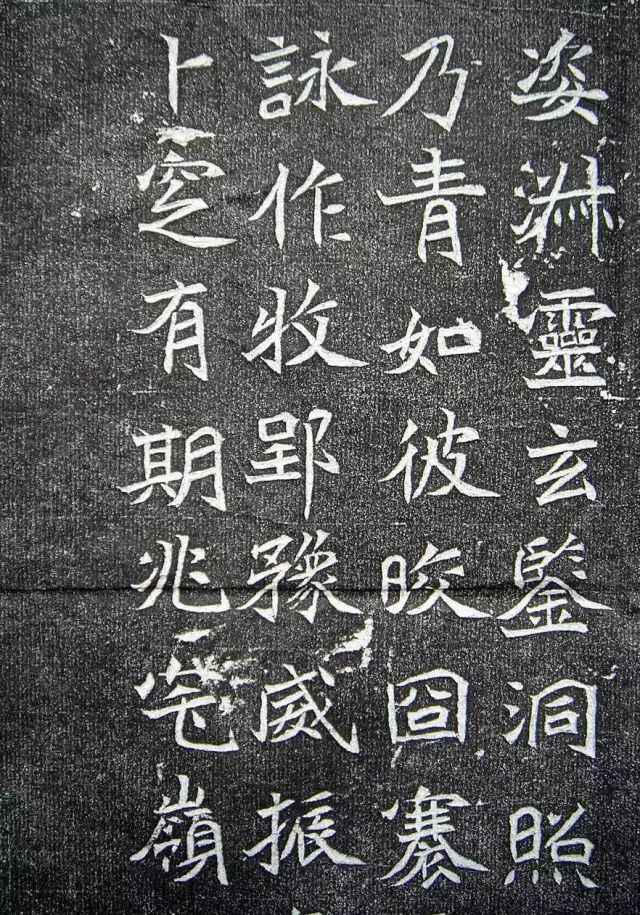 姿淵靈玄鑒洞照
乃青如彼晈囧褰
詠作牧郢豫威振
卜窆有期兆宅嶺